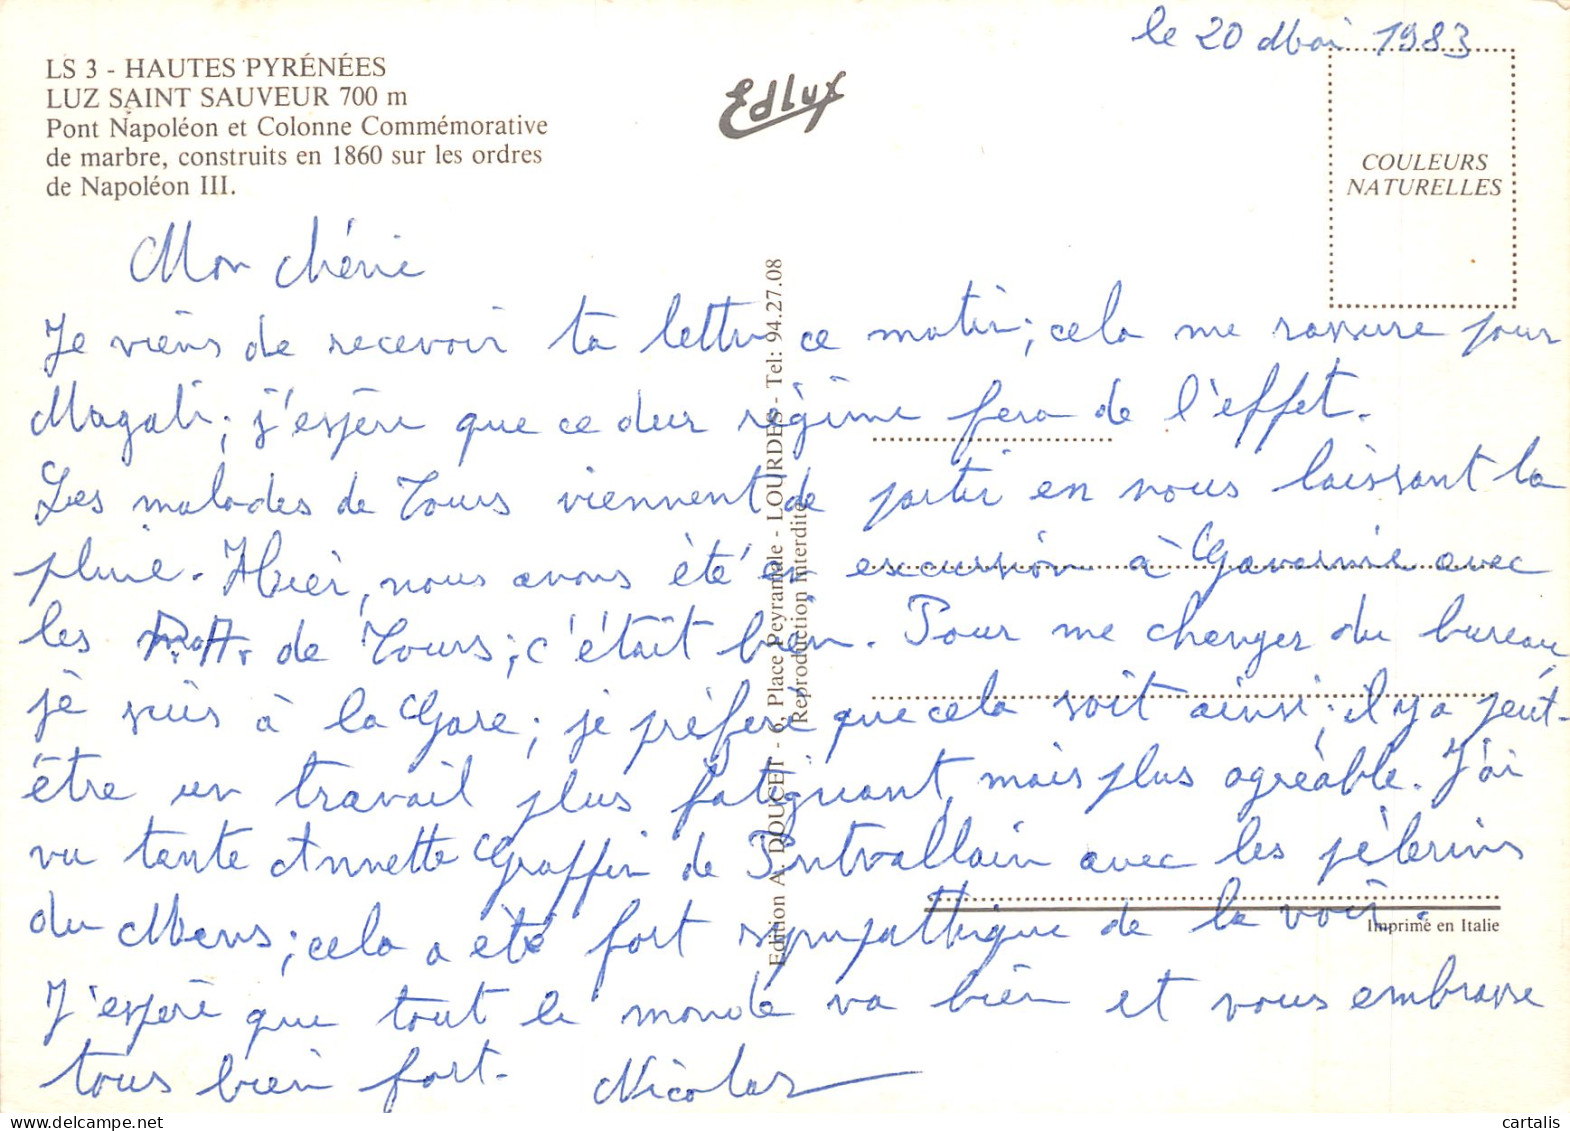 le 20 Mai 1983
LS 3 - HAUTES PYRÉNÉES
LUZ SAINT SAUVEUR 700 m
Pont Napoléon et Colonne Commémorative
de marbre, construits en 1860 sur les ordres
de Napoléon III.
Edlux
COULEURS
NATURELLES
Mon chérie
Je viens de recevoir ta lettre ce matin; cela me rassure pour
Magali; j'espère que ce dur régime fera de l'effet.
Les malades de Tours viennent de partir en nous laissant la
pluie. Hier, nous avons été en excursion à Gavarnie avec
les de Tours; c'était bien. Pour me changer du bureau,
je suis à la Gare; je préfère que cela soit ainsi; il y a peut-
être un travail plus fatiguant, mais plus agréable. J'ai
vu tante Annette Graffin de Pontvallain avec les pèlerins
du Mans; cela a été fort sympathique de la voir.
J'espère que tout le monde va bien et vous embrasse
tous bien fort. Nicolas
Edition A. DOUCET - 6, Place Peyramale - LOURDES - Tel: 94.27.08
Reproduction Interdite
Imprimé en Italie
cartalis